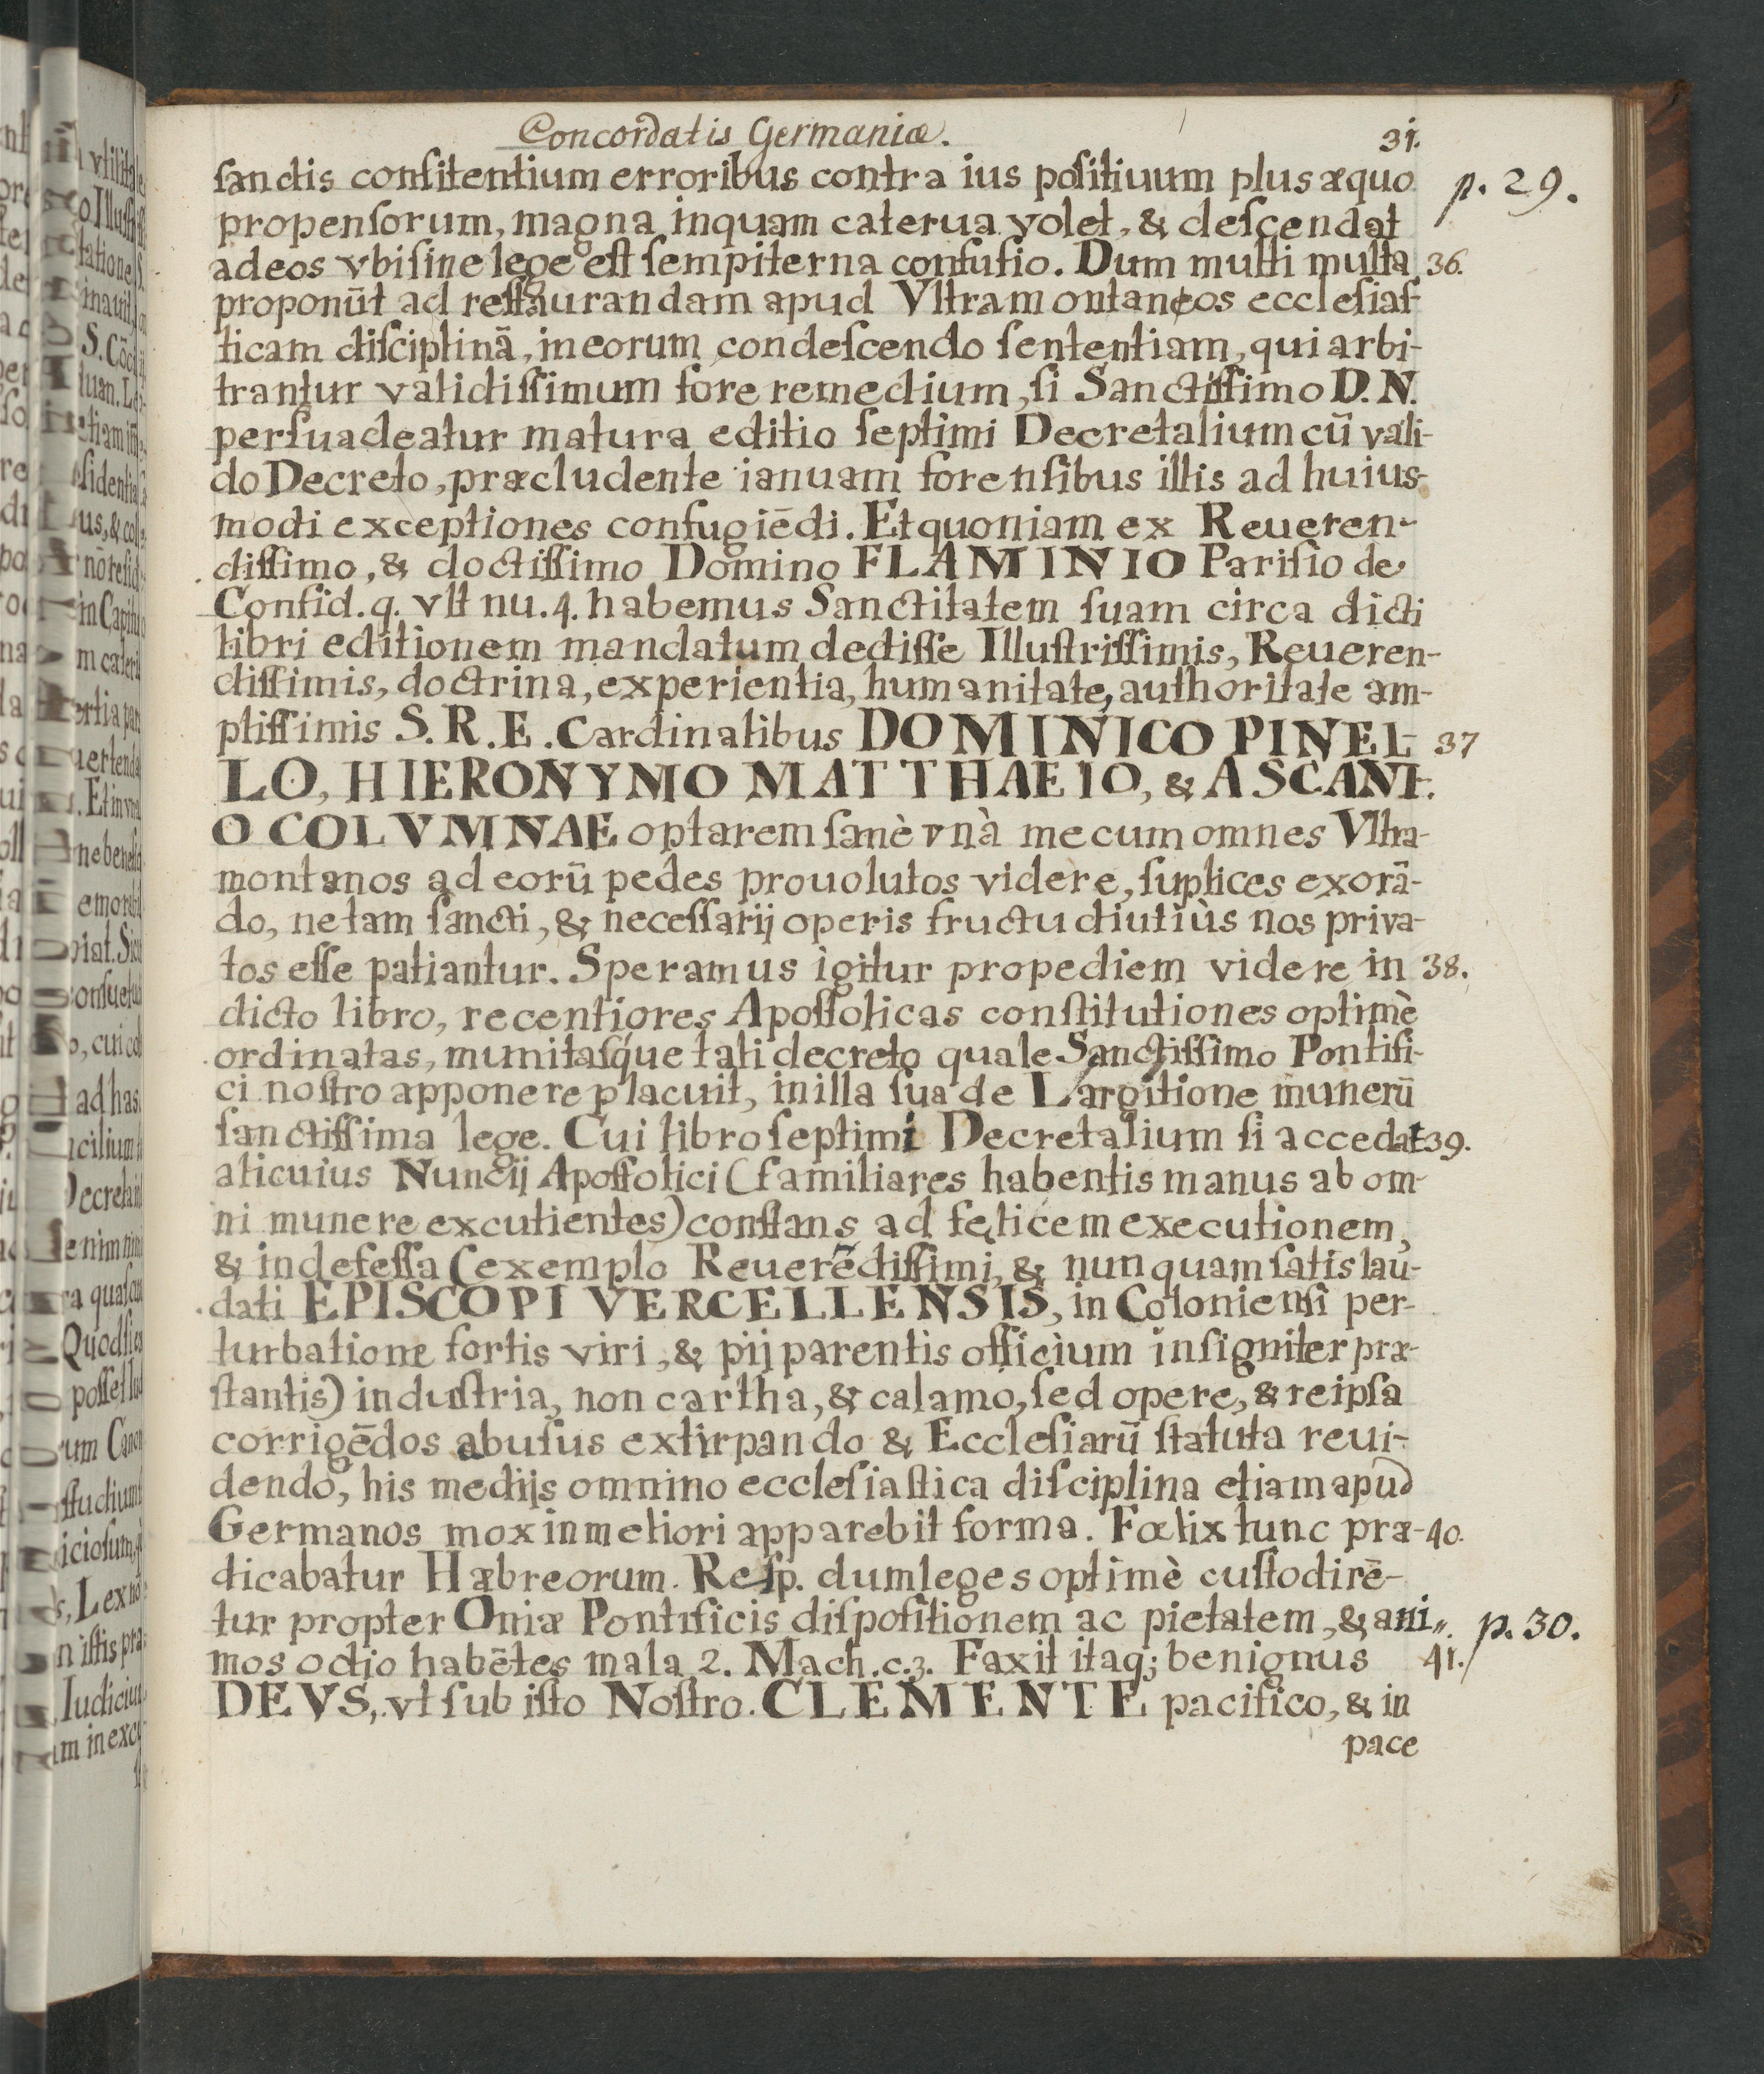 Concordatis Germaniæ. 31.
ſandis conſitentium erroribus contra ius poſitiuum plus æquo p. 29.
propenſorum, magna inquam caterua volet, & deſcendat
ad eos vbi ſine lege eſt ſempiterna confuſio. Dum multi multa 36.
proponūt ad reſtaurandam apud Vltramontaneos eccleſiaſ-
ticam diſciplinā, in eorum condeſcendo ſententiam, qui arbi-
trantur validiſſimum fore remedium, ſi Sanctiſſimo D. N.
perſuadeatur matura editio ſeptimi Decretalium cū vali-
do Decreto, præcludente ianuam forenſibus illis ad huius-
modi exceptiones confugiēdi. Et quoniam ex Reueren-
diſſimo, & doctiſſimo Domino FLAMINIO Pariſio de
Confid. q. vlt nu. 4. habemus Sanctitatem ſuam circa dicti
libri editionem mandatum dediſſe Illuſtriſſimis, Reueren-
diſſimis, doctrina, experientia, humanitate, authoritate am-
pliſſimis S. R. E. Cardinalibus DOMINICO PINEL- 37
LO, HIERONYMO MATTHAEIO, & ASCANI-
O COLVMNAE optarem ſanè vnà mecum omnes Vltra-
montanos ad eorū pedes prouolutos videre, ſuplices exorā-
do, ne tam ſancti, & neceſſarij operis fructu diutiùs nos priva-
tos eſſe patiantur. Speramus igitur propediem videre in 38.
dicto libro, recentiores Apoſtolicas conſtitutiones optimè
ordinatas, munitaſque tali decreto quale Sanctiſſimo Pontifi-
ci noſtro apponere placuit, in illa ſua de Largitione munerū
ſanctiſſima lege. Cui libro ſeptimi Decretalium ſi accedat 39.
alicuius Nuncij Apoſtolici (familiares habentis manus ab om-
ni munere excutientes) conſtans ad felicem executionem,
& indefeſſa (exemplo Reuerēdiſſimi, & nunquam ſatis lau-
dati EPISCOPI VERCELLENSIS, in Colonienſi per-
turbatione fortis viri, & pij parentis officium inſigniter præ-
ſtantis) induſtria, non cartha, & calamo, ſed opere, & reipſa
corrigēdos abuſus extirpando & Eccleſiarū ſtatuta reui-
dendo, his medijs omnino eccleſiaſtica diſciplina etiam apud
Germanos mox in meliori apparebit forma. Fœlix tunc præ- 40.
dicabatur Hæbreorum. Reſp. dum leges optimè cuſtodirē-
tur propter Oniæ Pontificis diſpoſitionem ac pietatem, & ani„ p. 30.
mos odio habētes mala 2. Mach. c. 3. Faxit itaq; benignus 41.
DEVS, vt ſub iſto Noſtro. CLEMENTE pacifico, & in
pace